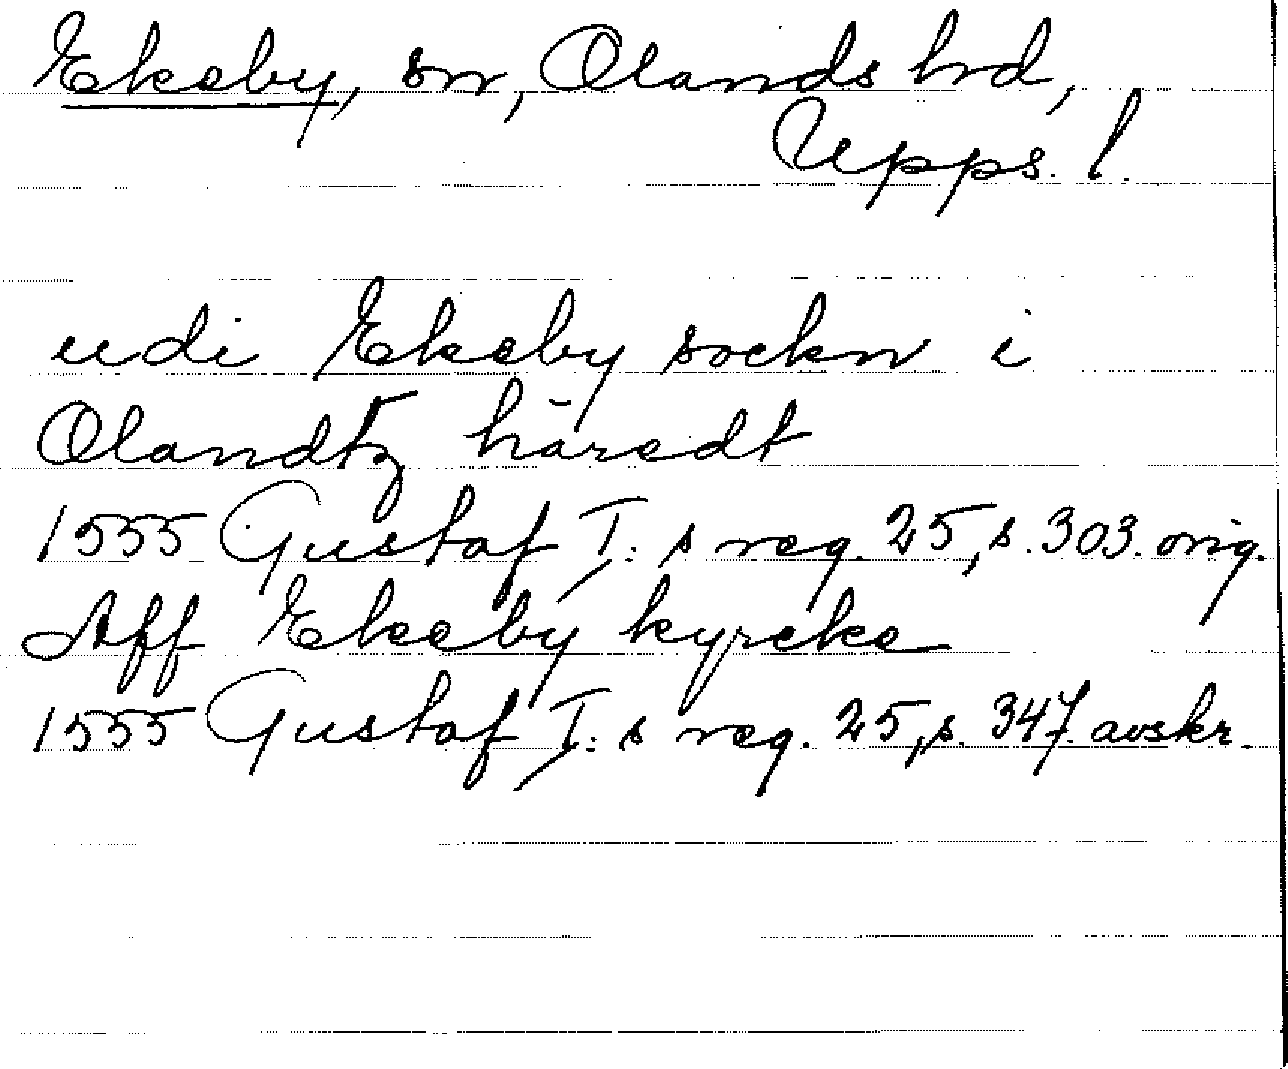 Ekeby, sn, Olands hrd,
Upps. l.
udi Ekeby sockn i
Olandtz häredt
1555 Gustaf I: s reg. 25, s. 303. orig.
Aff Ekeby kyrcke
1555 Gustaf I: s reg. 25, s. 347. avskr.